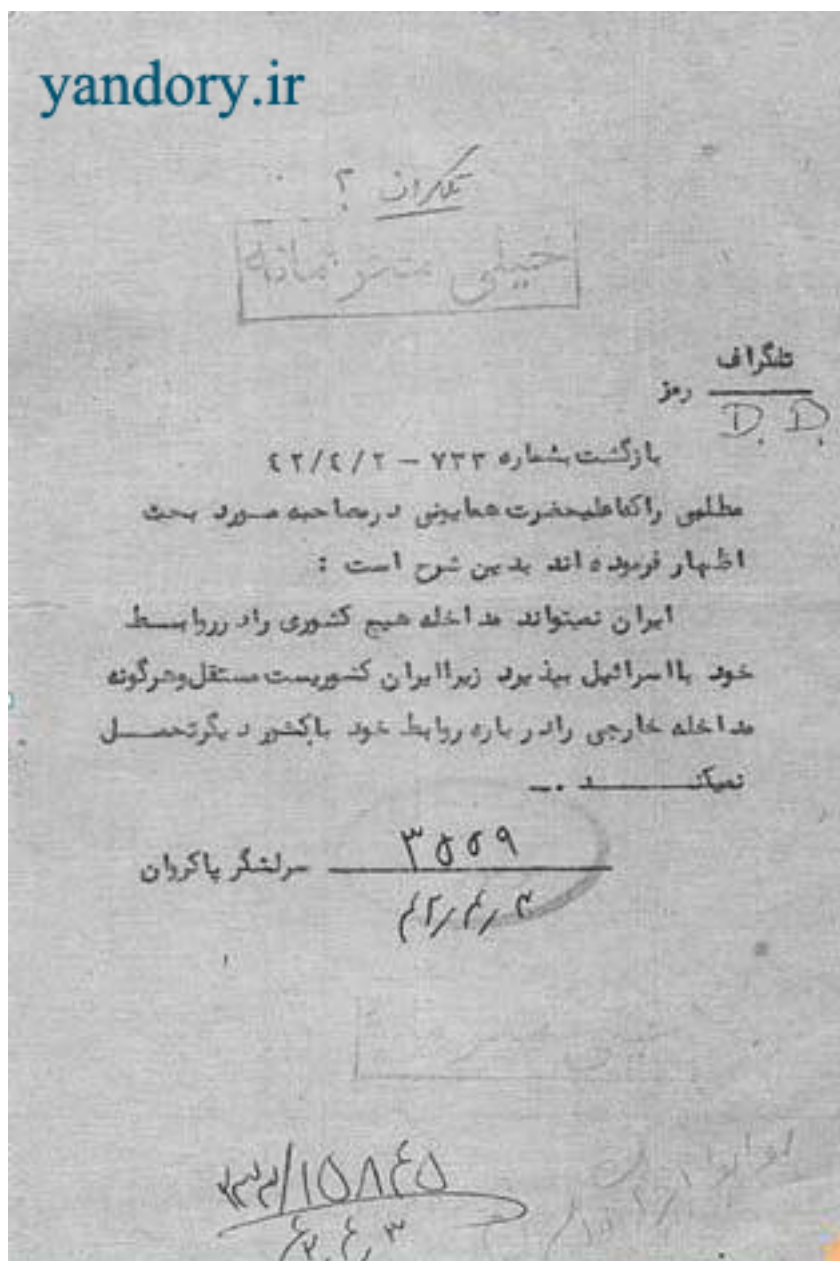 yandory.ir
خیلی محرمانه
تلگراف
رمز
D. D.
بازگشت بشماره ۷۳۳ – ۴۲/۴/۲
مطلبی راکه اعلیحضرت همایونی درمصاحبه مورد بحث
اظهار فرموده اند بدین شرح است :
ایران نمیتواند مداخله هیچ کشوری رادرروابط
خود بااسرائیل بپذیرد زیراایران کشوریست مستقل وهرگونه
مداخله خارجی رادرباره روابط خود باکشور دیگرتحمل
نمیکند .ـ
۳۵۵۹
سرلشگر پاکروان
۴۲٫۴٫۳
۳۳۳/۱۵۸۴۵
۴۲٫۴٫۳